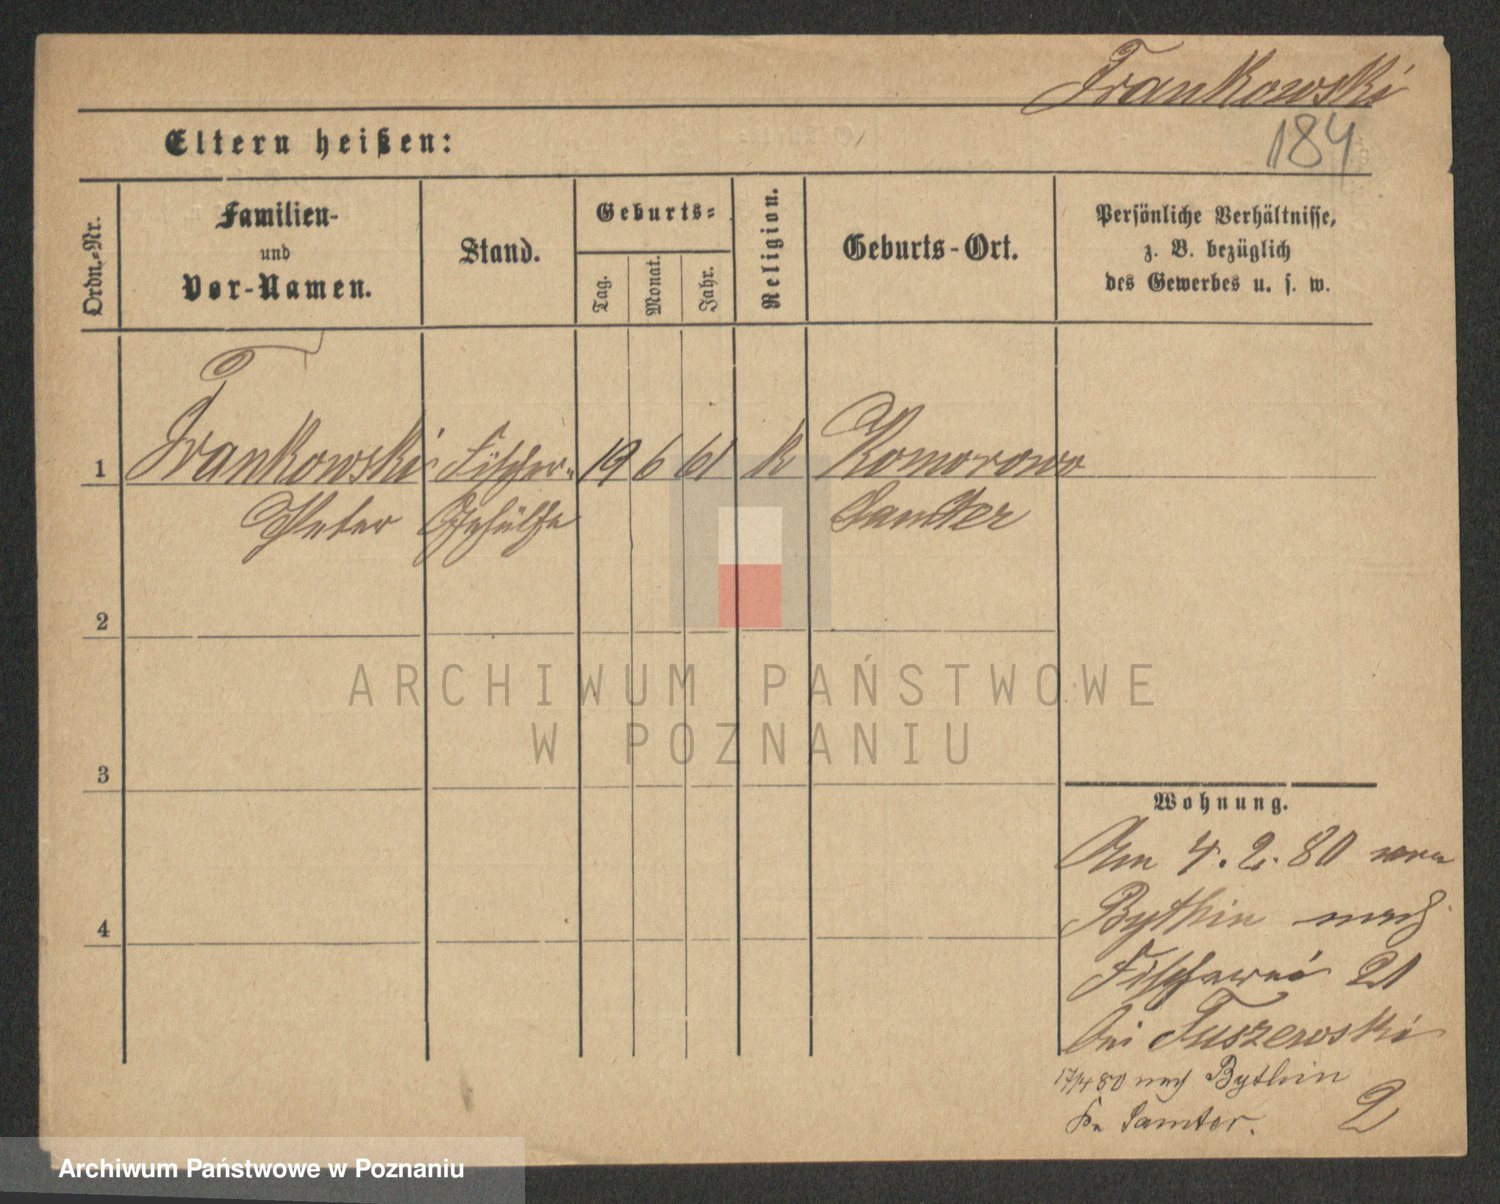 Frankowski
184
Eltern heißen:
Ordn.-Nr.
Familien-
und
Vor-Namen.
Stand.
Geburts-
Tag.
Monat.
Jahr.
Religion.
Geburts-Ort.
Persönliche Verhältnisse,
z. B. bezüglich
des Gewerbes u. s. w.
1 Frankowski Fischer- 19 6 61 k Komorowo
Peter Gehülfe Samter
2
3
4
ARCHIWUM PAŃSTWOWE
W POZNANIU
Wohnung.
Am 4.2.80 von
Bythin nach
Fischerei 21
bei Tuszewski
17/4 80 nach Bythin
Kr. Samter.
2
Archiwum Państwowe w Poznaniu